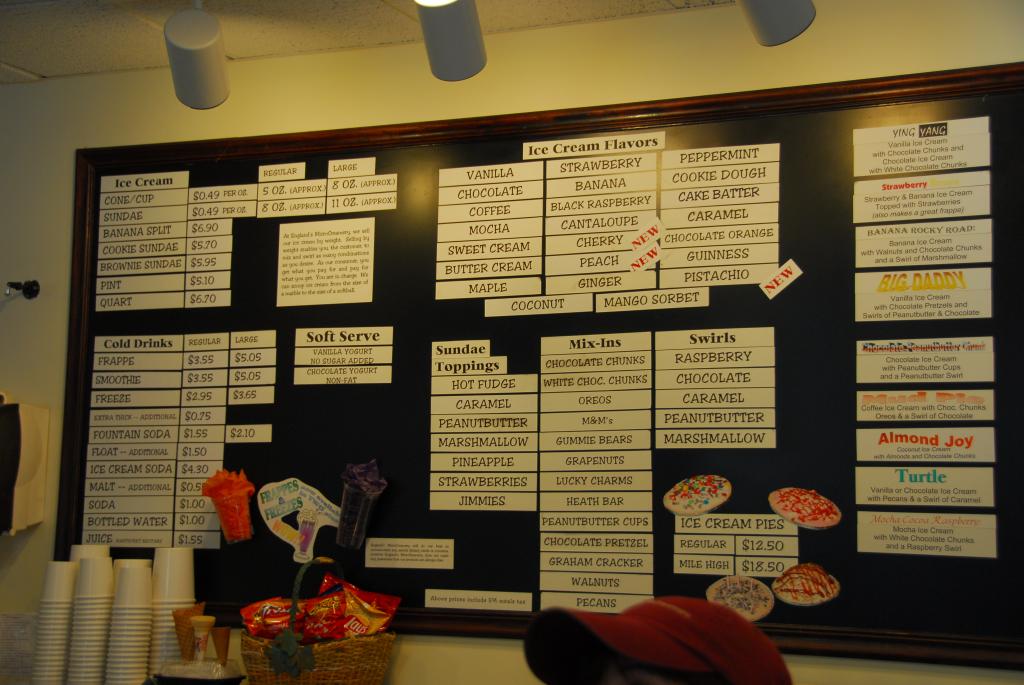 Ice Cream
REGULAR LARGE
CONE/CUP $0.49 PER OZ. 5 OZ. (APPROX.) 8 OZ. (APPROX.)
SUNDAE $0.49 PER OZ. 8 OZ. (APPROX.) 11 OZ. (APPROX.)
BANANA SPLIT $6.90
COOKIE SUNDAE $5.70
BROWNIE SUNDAE $5.95
PINT $5.10
QUART $6.70
we sell
our ice cream by weight. Selling by
weight enables you the customer to
mix and swirl as many combinations
as you desire. As our consumer, you
get what you pay for and pay for
what you get. You are in charge. We
can scoop ice cream from the size of
a marble to the size of a softball.
Cold Drinks REGULAR LARGE
FRAPPE $3.55 $5.05
SMOOTHIE $3.55 $5.05
FREEZE $2.95 $3.65
EXTRA THICK -- ADDITIONAL $0.75
FOUNTAIN SODA $1.55 $2.10
FLOAT -- ADDITIONAL $1.50
ICE CREAM SODA $4.30
MALT -- ADDITIONAL
SODA $1.00
BOTTLED WATER $1.00
JUICE $1.55
Soft Serve
VANILLA YOGURT
NO SUGAR ADDED
CHOCOLATE YOGURT
NON-FAT
FRAPPES
&
FREEZES
Above prices include 5% meals tax
Ice Cream Flavors
VANILLA
CHOCOLATE
COFFEE
MOCHA
SWEET CREAM
BUTTER CREAM
MAPLE
STRAWBERRY
BANANA
BLACK RASPBERRY
CANTALOUPE
CHERRY NEW
PEACH NEW
GINGER
PEPPERMINT
COOKIE DOUGH
CAKE BATTER
CARAMEL
CHOCOLATE ORANGE
GUINNESS
PISTACHIO NEW
COCONUT MANGO SORBET
Sundae
Toppings
HOT FUDGE
CARAMEL
PEANUTBUTTER
MARSHMALLOW
PINEAPPLE
STRAWBERRIES
JIMMIES
Mix-Ins
CHOCOLATE CHUNKS
WHITE CHOC. CHUNKS
OREOS
M&M's
GUMMIE BEARS
GRAPENUTS
LUCKY CHARMS
HEATH BAR
PEANUTBUTTER CUPS
CHOCOLATE PRETZEL
GRAHAM CRACKER
WALNUTS
PECANS
Swirls
RASPBERRY
CHOCOLATE
CARAMEL
PEANUTBUTTER
MARSHMALLOW
ICE CREAM PIES
REGULAR $12.50
MILE HIGH $18.50
YING YANG
Vanilla Ice Cream
with Chocolate Chunks and
Chocolate Ice Cream
with White Chocolate Chunks
Strawberry
Strawberry & Banana Ice Cream
Topped with Strawberries
(also makes a great frappe)
BANANA ROCKY ROAD:
Banana Ice Cream
with Walnuts and Chocolate Chunks
and a Swirl of Marshmallow
BIG DADDY
Vanilla Ice Cream
with Chocolate Pretzels and
Swirls of Peanutbutter & Chocolate
Chocolate Ice Cream
with Peanutbutter Cups
and a Peanutbutter Swirl
Mud Pie
Coffee Ice Cream with Choc. Chunks
Oreos & a Swirl of Chocolate
Almond Joy
Coconut Ice Cream
with Almonds and Chocolate Chunks
Turtle
Vanilla or Chocolate Ice Cream
with Pecans & a Swirl of Caramel
Mocha Cocoa Raspberry:
Mocha Ice Cream
with White Chocolate Chunks
and a Raspberry Swirl